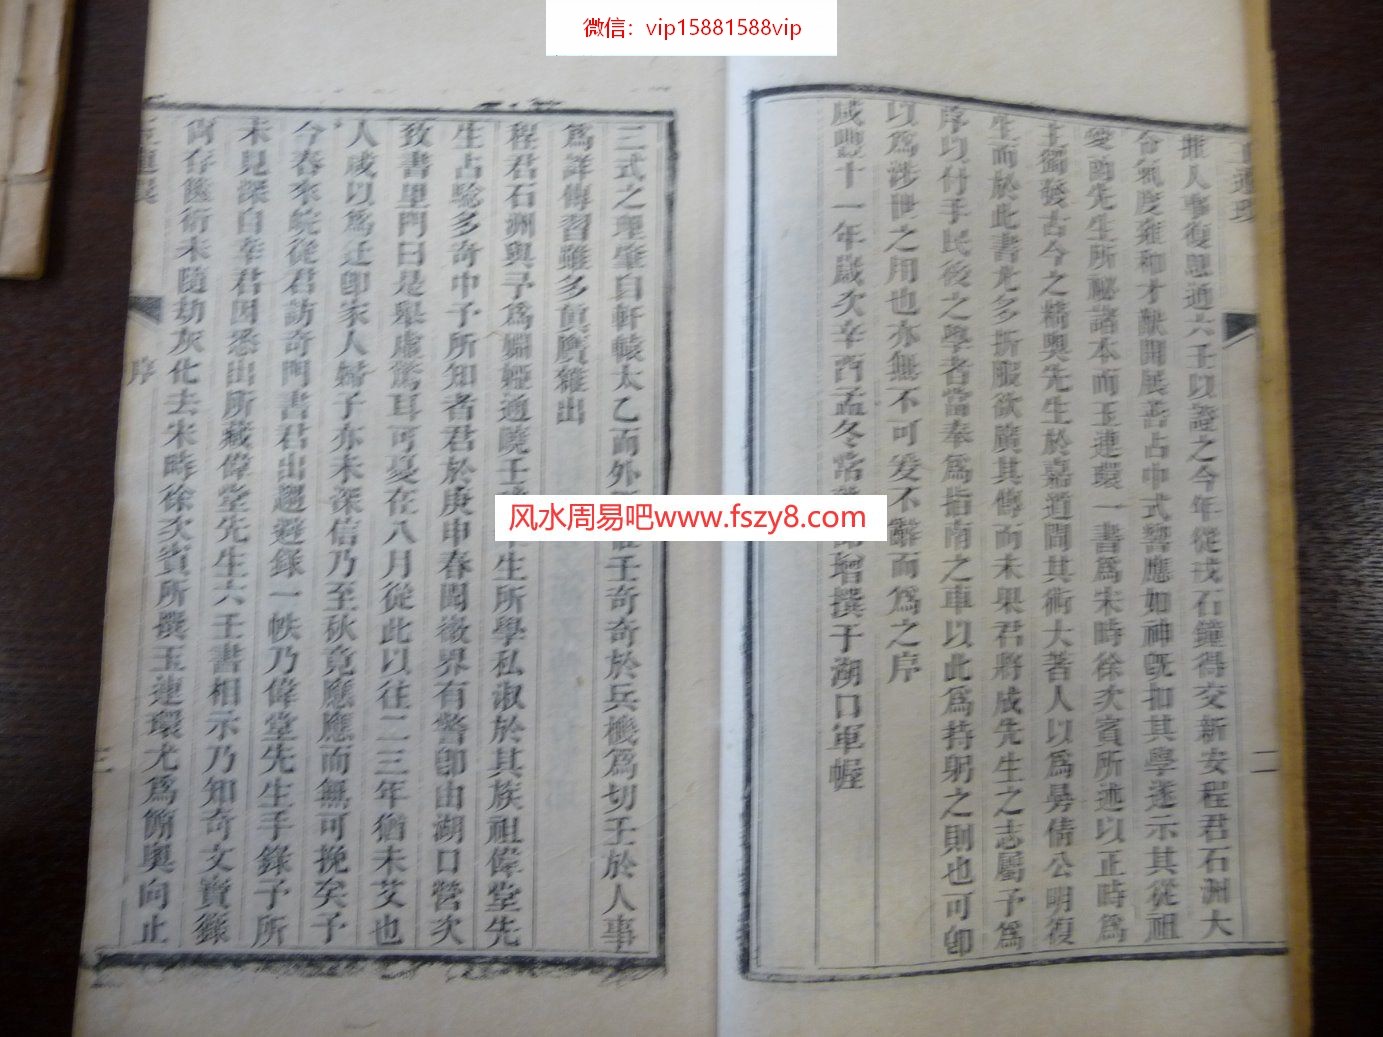 微信：vip15881588vip
推人事復思通六壬以證之今年從戎石鐘得交新安程君石洲大
令氣度雍和才猷開展善占中式響應如神旣扣其學遂示其從祖
愛函先生所秘諸本而玉連環一書爲宋時徐次賓所述以正時爲
主獨發古今之精奧先生於嘉道間其術大著人以爲曼倩公明復
生而於此書尤多折服欲廣其傳而未果君將成先生之志屬予爲
序以付手民後之學者當奉爲指南之車以此爲持躬之則也可卽
以爲涉世之用也亦無不可爰不辭而爲之序
咸豐十一年歲次辛酉孟冬常 增撰于湖口軍幄
二
三式之理肇自軒轅太乙而外 壬奇奇於兵機爲切壬於人事
爲詳傳習雖多眞贋雜出
程君石洲與予爲婣婭通曉壬 生所學私淑於其族祖偉堂先
生占驗多奇中予所知者君於庚申春聞徽界有警卽由湖口營次
致書里門曰是舉虛驚耳可憂在八月從此以往二三年猶未艾也
人咸以爲迂卽家人婦子亦未深信乃至秋竟應應而無可挽矣予
今春來皖從君訪奇門書君出趨避錄一帙乃偉堂先生手錄予所
未見深自幸君因悉出所藏偉堂先生六壬書相示乃知奇文寶籙
尙存篋衍未隨劫灰化去宋時徐次賓所撰玉連環尤爲簡奧向止
序
三
风水周易吧www.fszy8.com